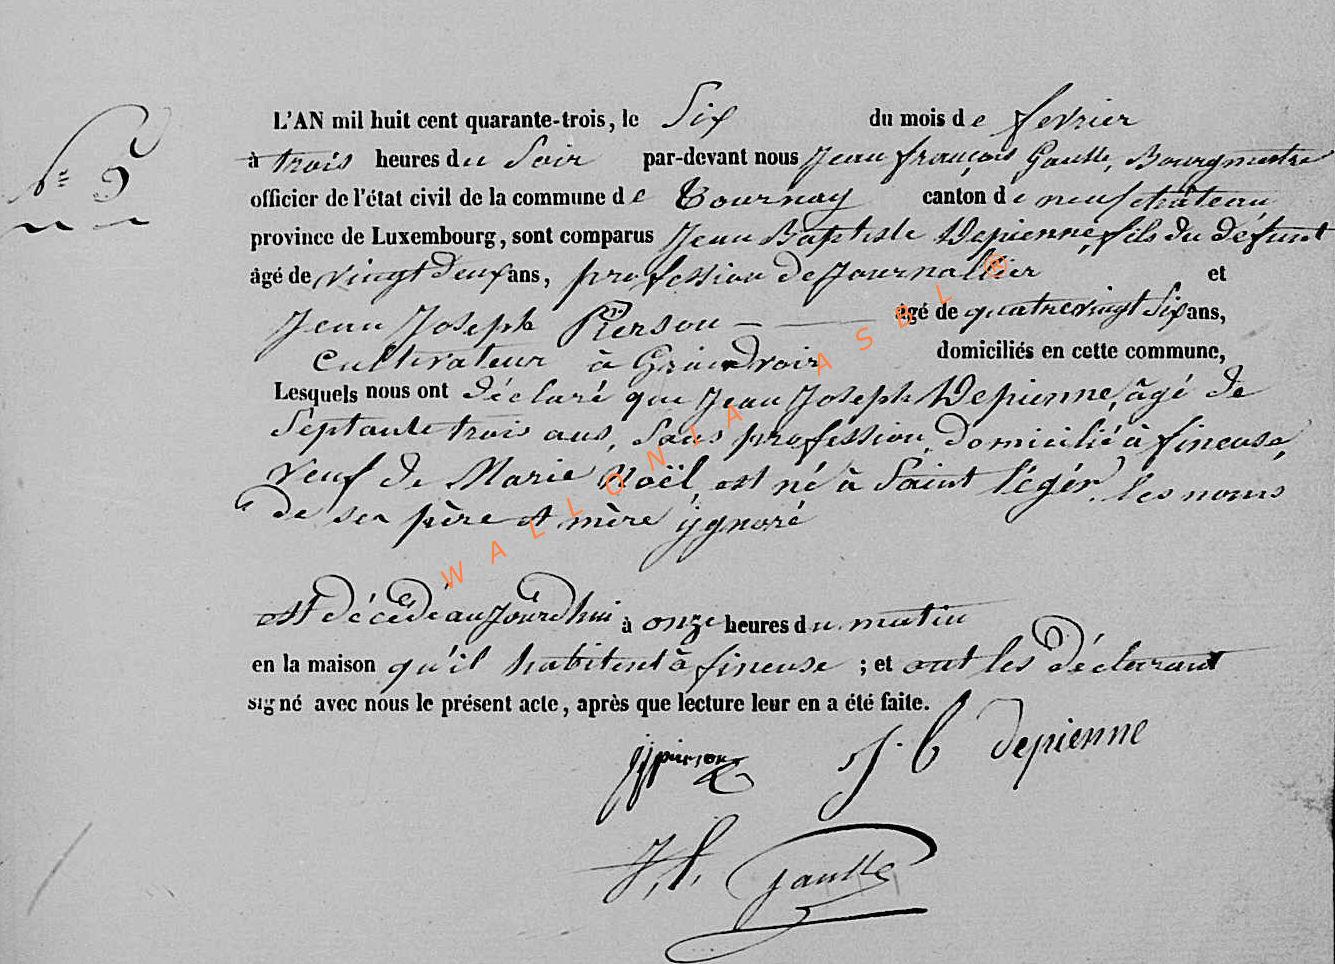 Nº 5
L'AN mil huit cent quarante-trois, le Six du mois de fevrier
à trois heures du Soir par-devant nous Jean françois Gaulle, Bourgmestre
officier de l'état civil de la commune de Tournay canton de neufchâteau
province de Luxembourg, sont comparus Jean Baptiste Depienne, fils du défunt
âgé de vingt Deux ans, profession de Journallier et
Jean Joseph Pierson — âgé de quatrevingt Six ans,
Cultivateur à Grandvoir domiciliés en cette commune,
Lesquels nous ont déclaré que Jean Joseph Depienne, âgé de
Septante trois ans, Sans profession, domicilié à fineuse,
veuf de Marie Noël, est né à Saint légér, les noms
de ses père et mère ygnoré
est décédé aujourdhui à onze heures du matin
en la maison qu'il habitent à fineuse ; et ont les Déclarant
signé avec nous le présent acte, après que lecture leur en a été faite.
jjpierson J. b depienne
J. f. Gaulle
WALLONIA ASBL ®